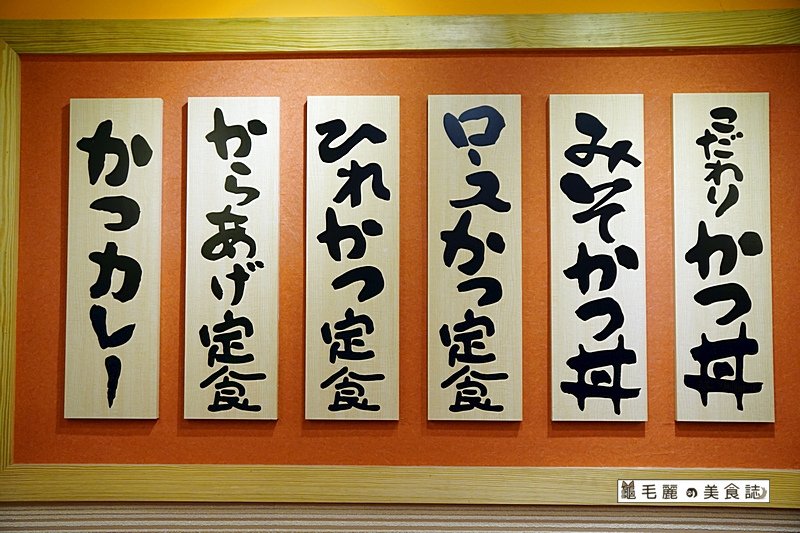 こだわりかつ丼
みそかつ丼
ロースかつ定食
ひれかつ定食
からあげ定食
かつカレー
毛麗の美食誌